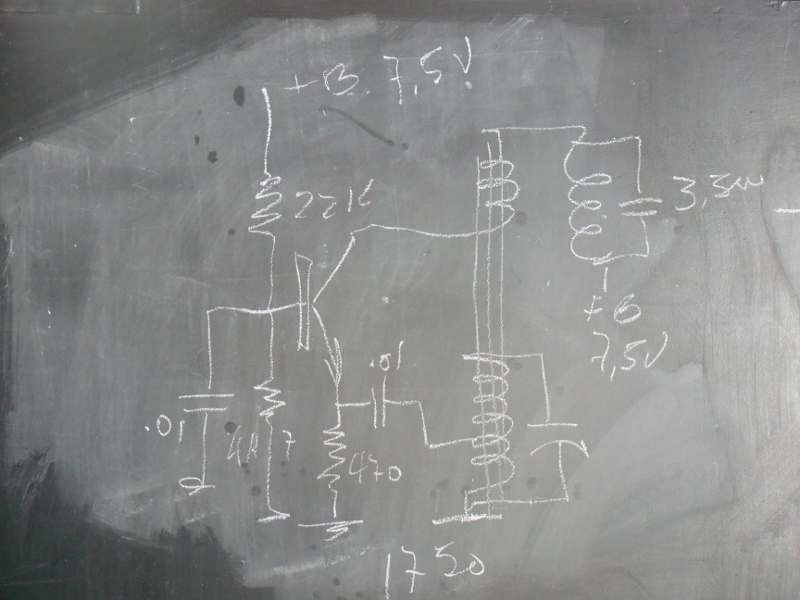 +B 7,5V
22K
+B
7,5V
.01
.01
4K7
470
1750